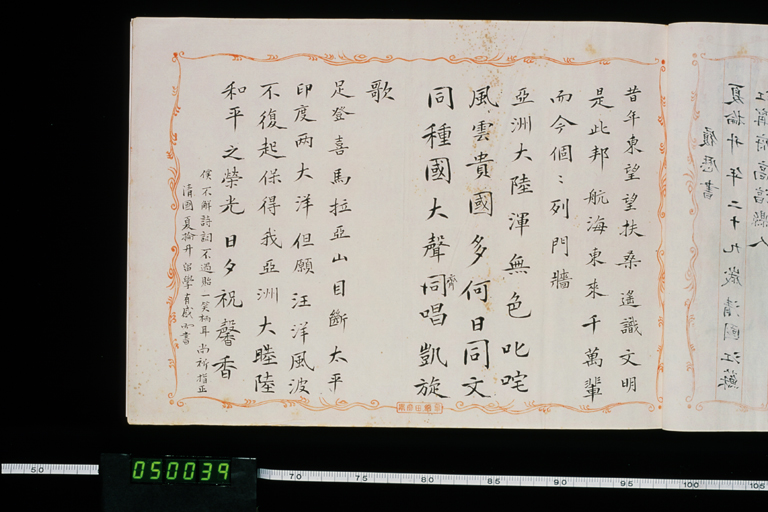 履歷書
夏掄升 年二十九歲 清國江蘇
昔年東望望扶桑遙識文明
是此邦航海東來千萬輩
而今個〻列門牆
亞洲大陸渾無色叱咤
風雲貴國多何日同文
同種國大聲同唱凱旋
齊
歌
足登喜馬拉亞山目斷太平
印度两大洋但願汪洋風波
不復起保得我亞洲大睦陸
和平之榮光日夕祝馨香
僕不解詩詞不過貽一笑柄耳尚祈指正
清国夏掄升留學有感而書
050039
50 70 75 80 85 90 95 100 105